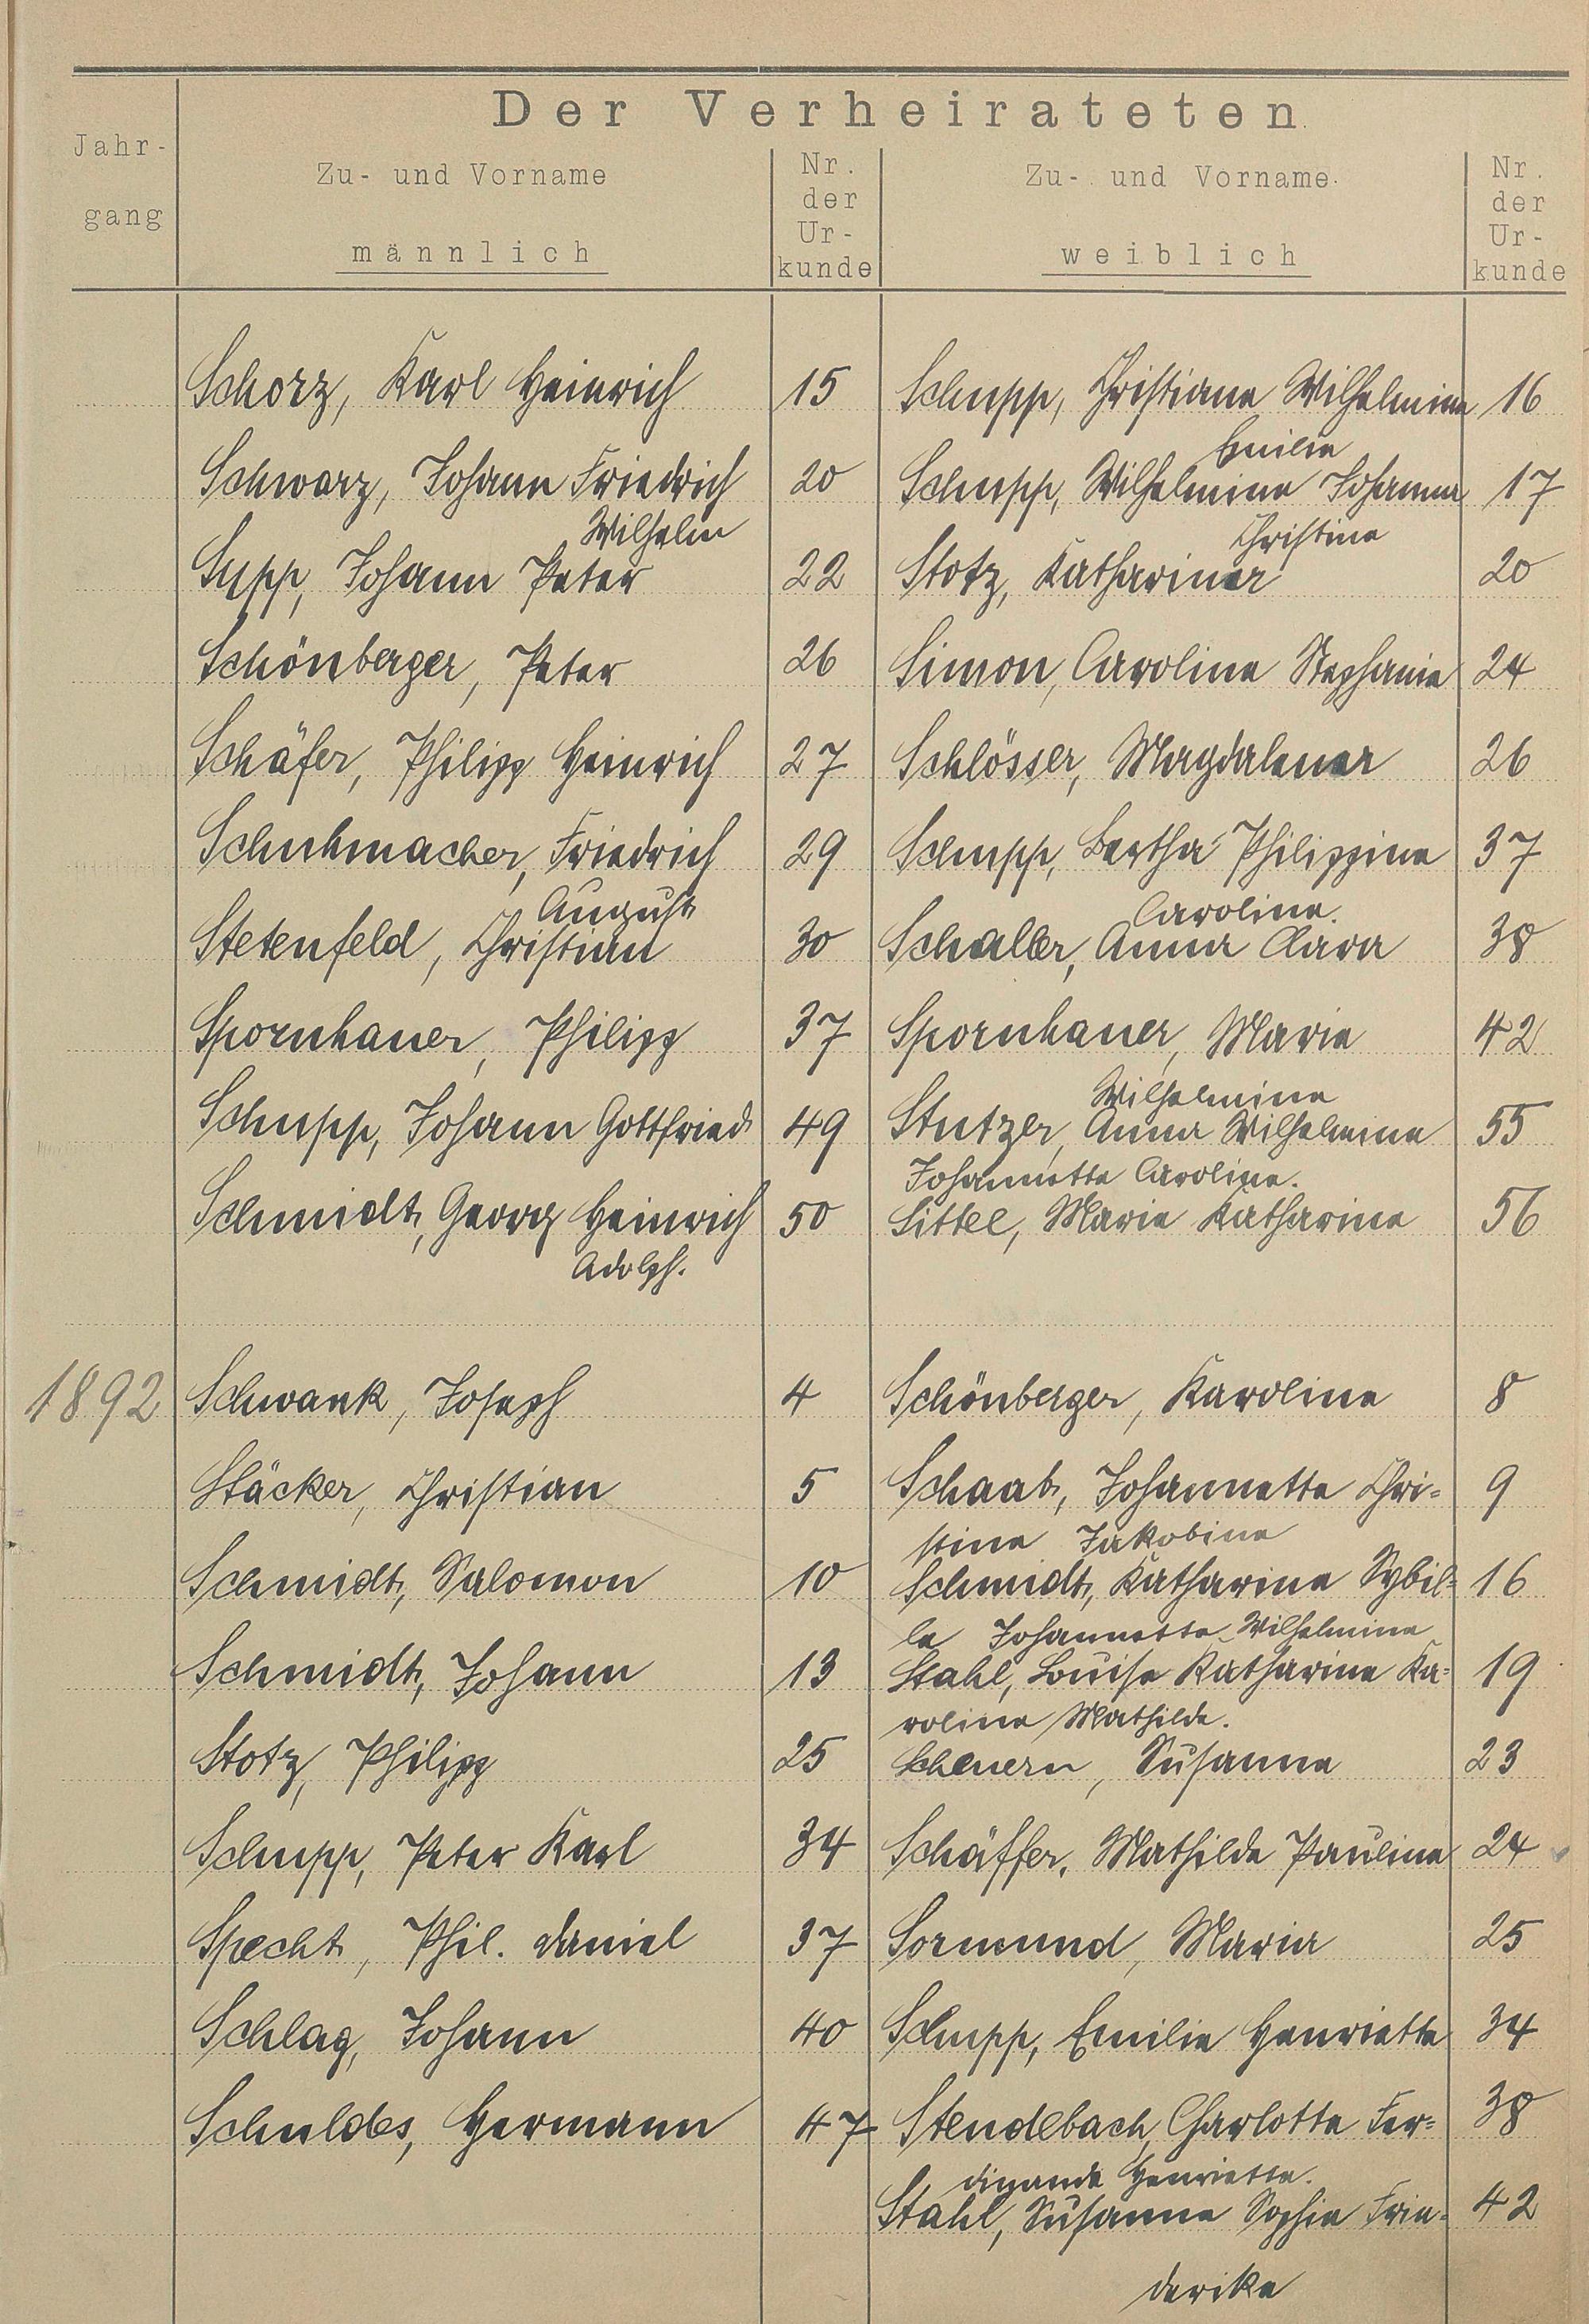 Der Verheirateten
Jahr-
gang
Zu- und Vorname
männlich
Nr.
der
Ur-
kunde
Zu- und Vorname
weiblich
Nr.
der
Ur-
kunde
Schorz, Karl Heinrich 15 Schupp, Christiane Wilhelmine 16
Emilie
Schwarz, Johann Friedrich 20 Schupp, Wilhelmine Johanna 17
Wilhelm Christine
Supp, Johann Peter 22 Stotz, Katharina 20
Schönberger, Peter 26 Simon, Caroline Stephanie 24
Schäfer, Philipp Heinrich 27 Schlösser, Magdalena 26
Schuhmacher, Friedrich 29 Schupp, Bertha Philippine 37
August Caroline.
Stetenfeld, Christian 30 Schaller, Anna Clara 38
Spornhauer, Philipp 37 Spornhauer, Marie 42
Wilhelmine
Schupp, Johann Gottfried 49 Stutzer, Anna Wilhelmine 55
Johannette Caroline.
Schmidt, Georg Heinrich 50 Sittel, Marie Katharine 56
Adolph.
1892 Schwank, Joseph 4 Schönberger, Karoline 8
Stäcker, Christian 5 Schaab, Johannette Chri= 9
stine Jakobine
Schmidt, Salomon 10 Schmidt, Katharine Sybil= 16
le Johannette Wilhelmine
Schmidt, Johann 13 Stahl, Louise Katharine Ka= 19
roline Mathilde.
Stotz, Philipp 25 Scheuern, Susanne 23
Schupp, Peter Karl 34 Schäffer, Mathilde Pauline 24
Specht, Phil. Daniel 37 Sormund, Maria 25
Schlag, Johann 40 Schupp, Emilie Henriette 34
Schuldes, Hermann 47 Stendebach, Charlotte Fer= 38
dinande Henriette.
Stahl, Susanne Sophie Frie= 42
derike